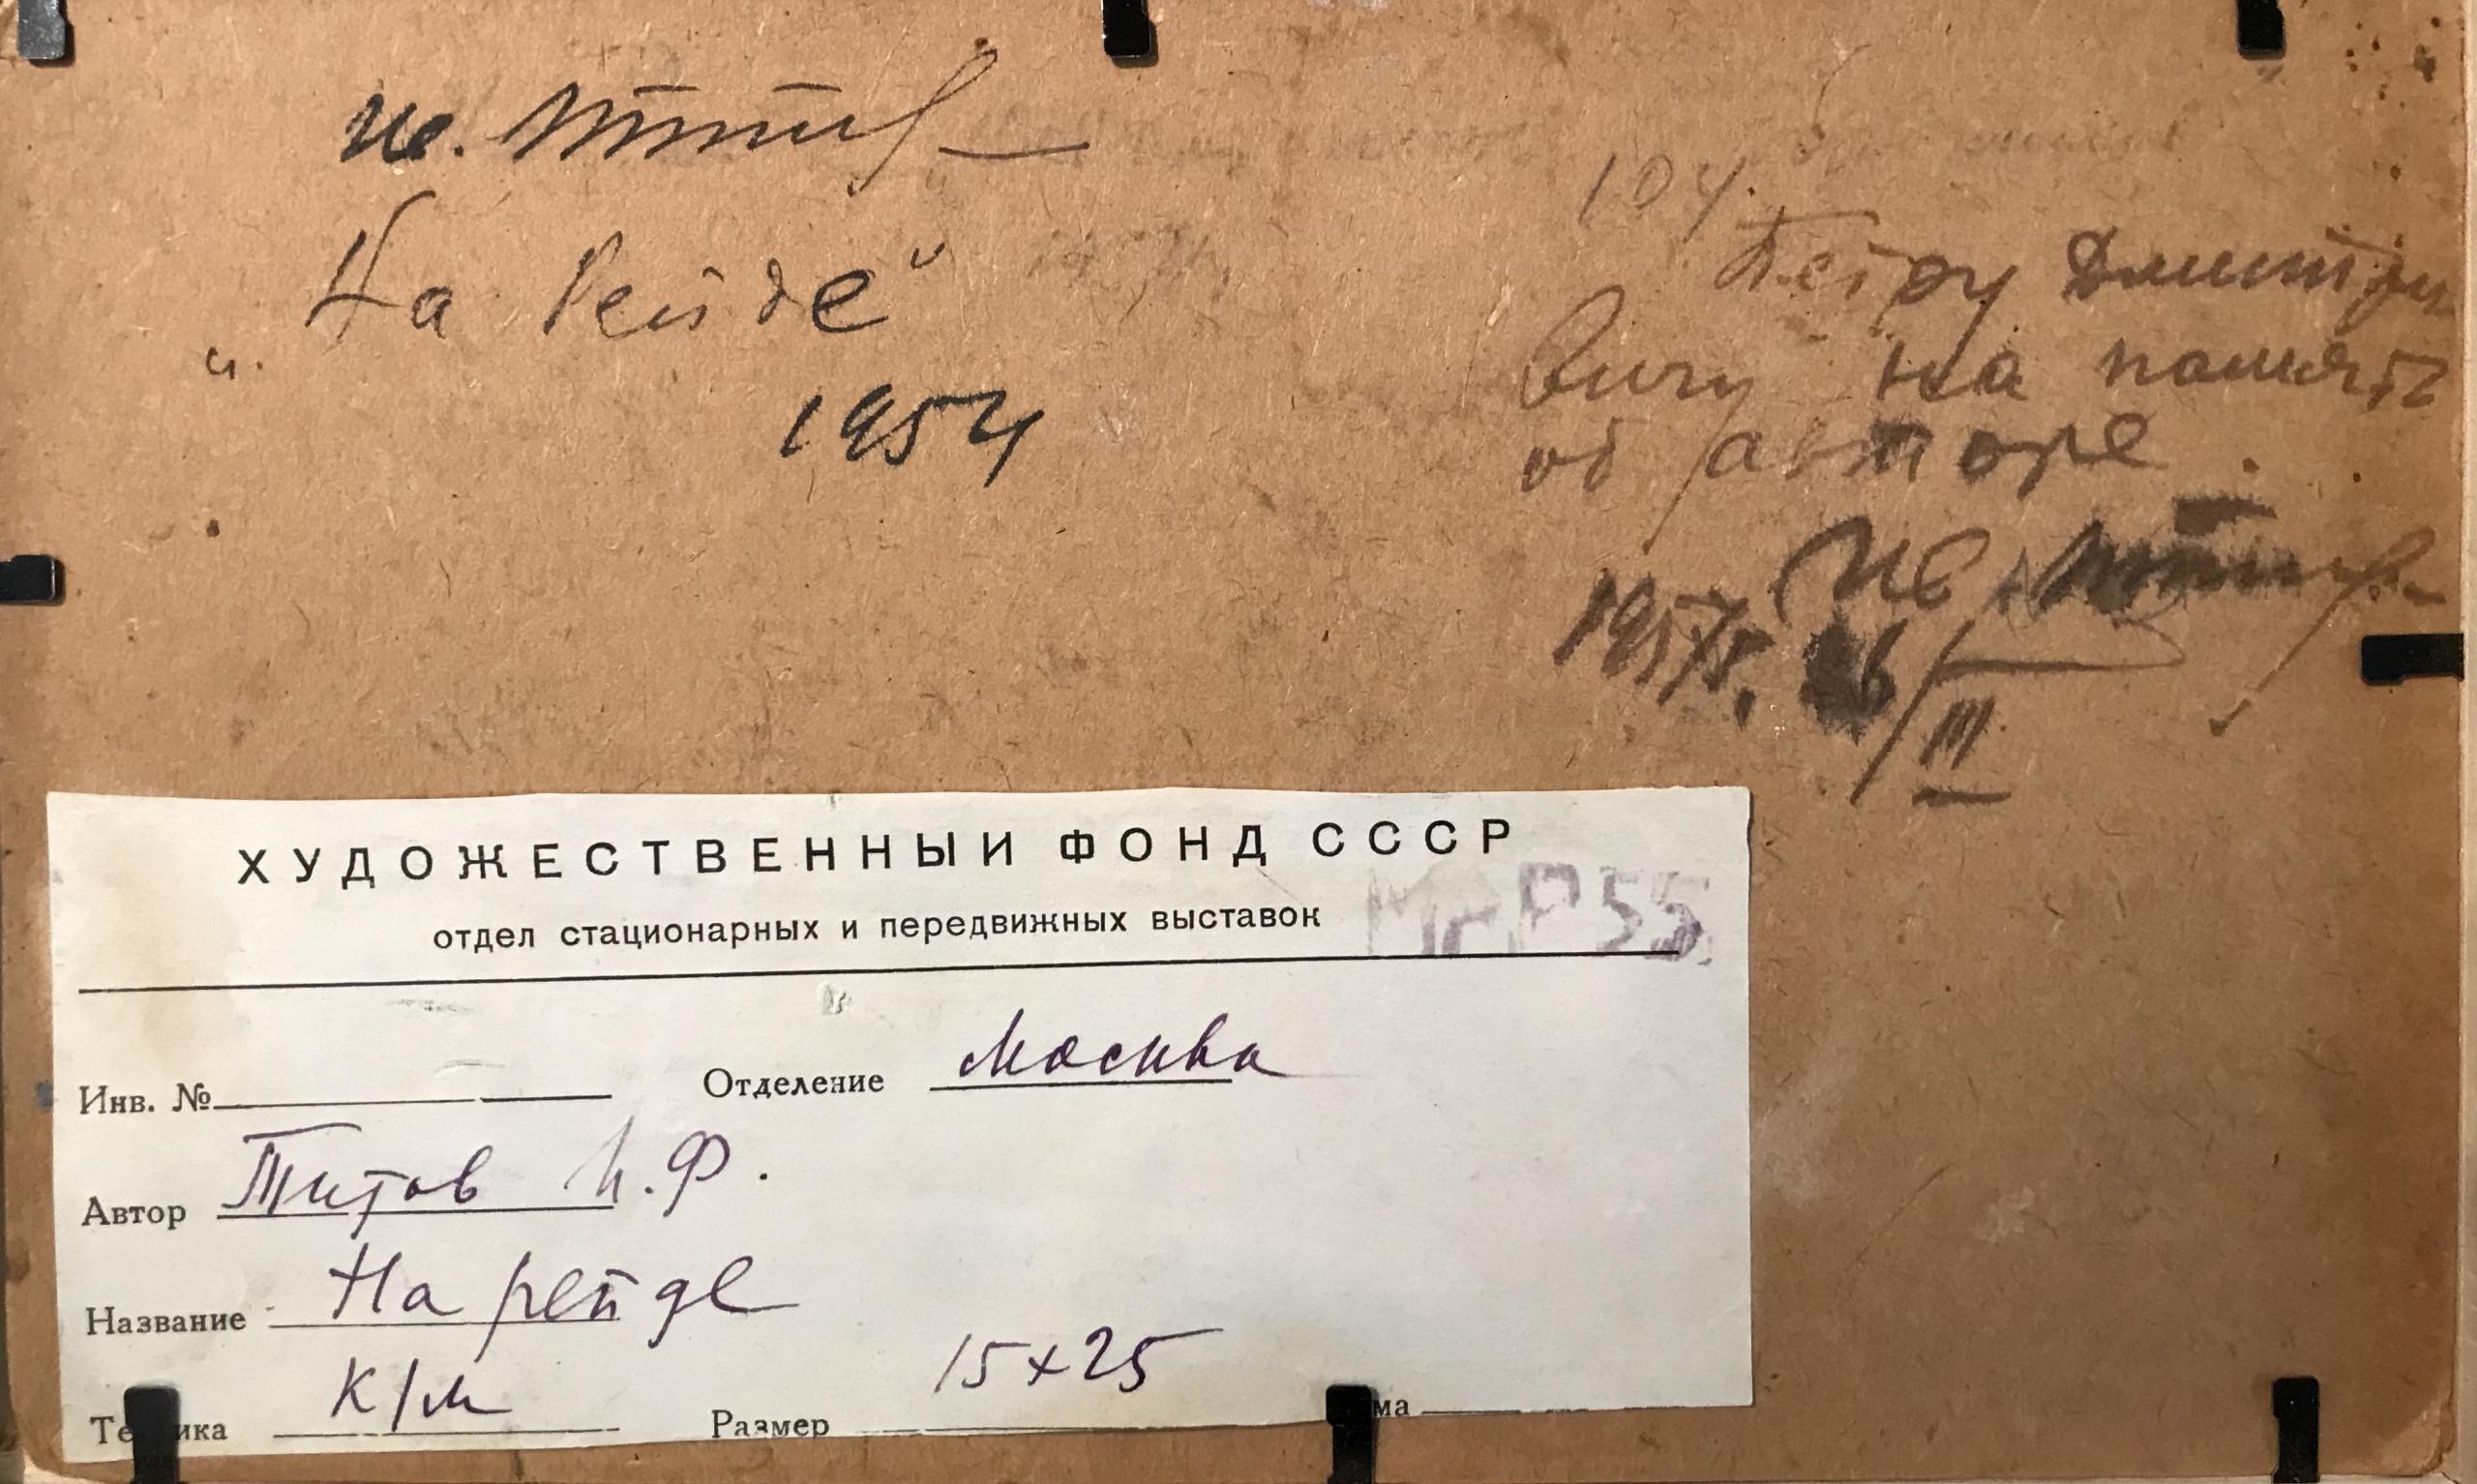 Ив. Титов
„На Рейде"
1954
104.
Петру Дмитрие
вичу на память
об авторе.
Ив Титов
1957г. 26/III
ХУДОЖЕСТВЕННЫЙ ФОНД СССР
отдел стационарных и передвижных выставок
Инв. № Отделение Москва
Автор Титов И.Ф.
Название На рейде
Техника К/м Размер 15х25 ма